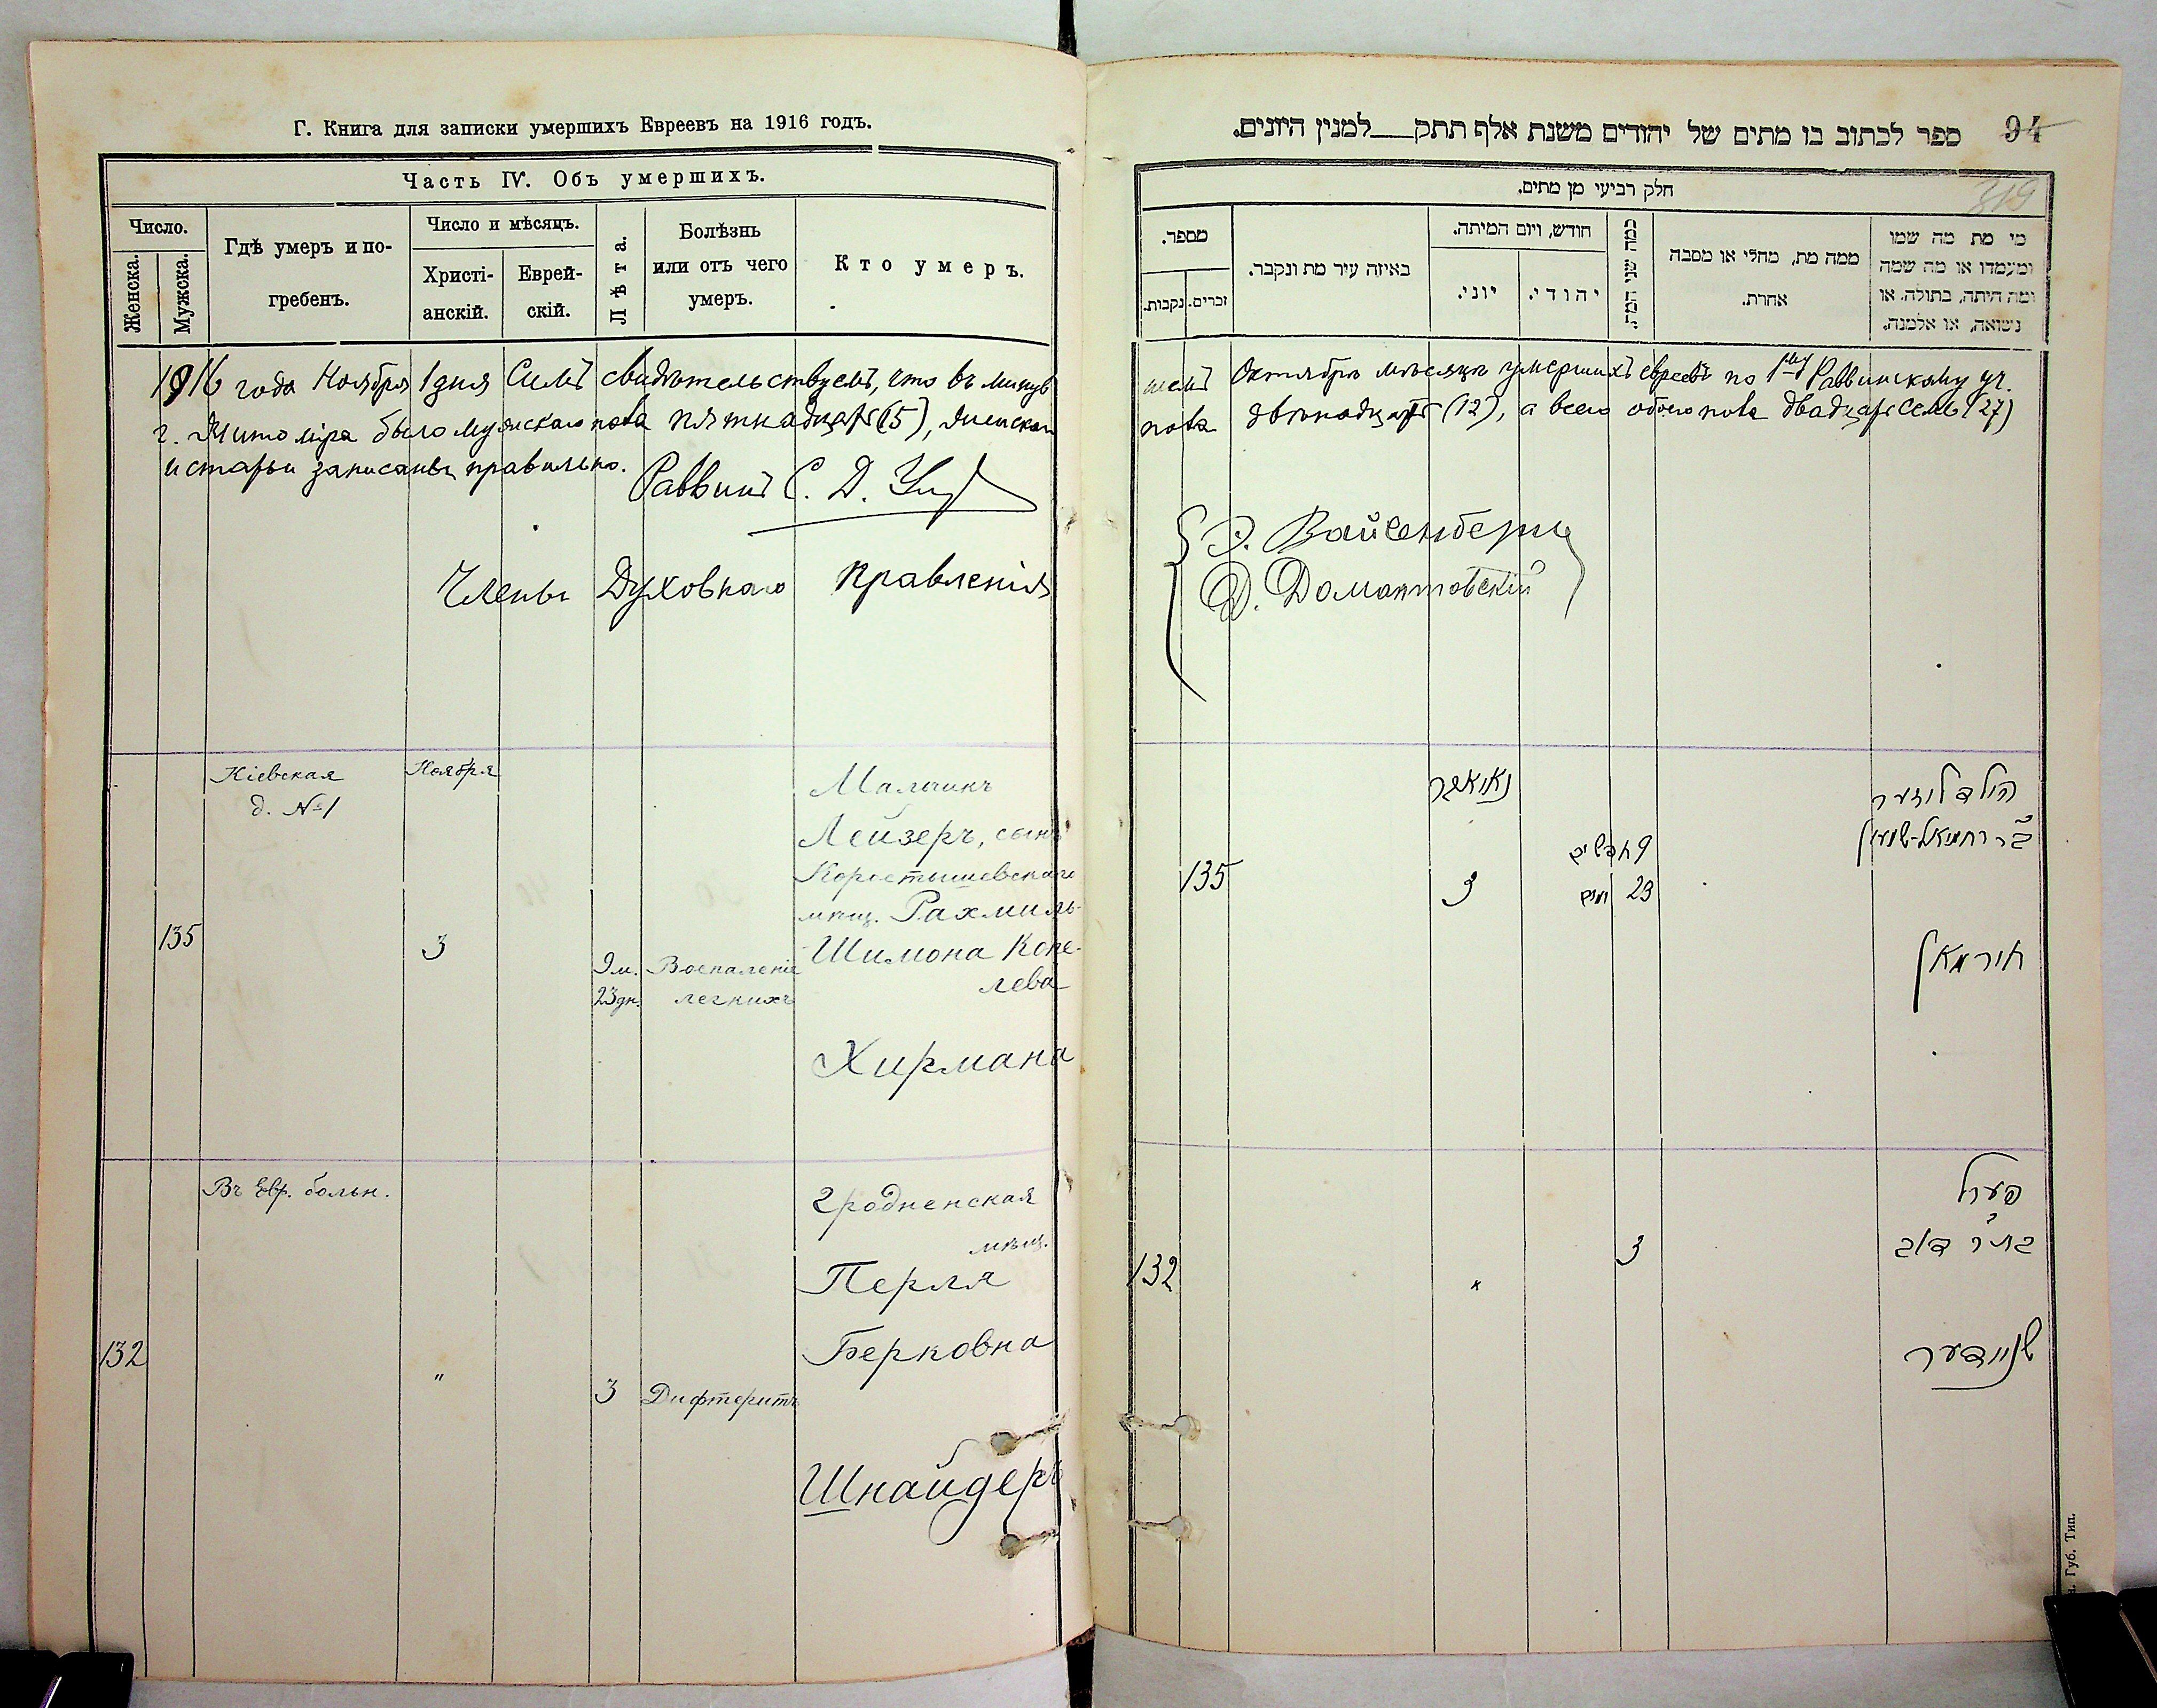 Г. Книга для записки умершихъ Евреевъ на 1916 годъ.
Часть IV. Объ умершихъ.
Число.
Женска.
Мужска.
Гдѣ умеръ и по-
гребенъ.
Число и мѣсяцъ.
Христі-
анскій.
Еврей-
скій.
Лѣта.
Болѣзнь
или отъ чего
умеръ.
Кто умеръ.
1916 года Ноября 1 дня Симъ свидѣтельствуемъ, что въ минув
г. Житоміра было мужскаго пола пятнадцать (15), женскаго
и статьи записаны правильно.
Раввинъ С. Д.
Члены Духовнаго Правленія
Кіевская
д. №1
Ноября
135
3
9 м.
23 дн.
Воспаленіе
легкихъ
Мальчикъ
Лейзеръ, сынъ
Коростышевскаго
мѣщ. Рахмиль-
Шимона Копе-
лева
Хирмана
Въ Евр. больн.
132
"
3
Дифтеритъ
Гродненская
мѣщ.
Перля
Берковна
Шнайдеръ
94
ספר לכתוב בו מתים של יהודים משנת אלף תתק למנין היונים.
319
חלק רביעי מן מתים.
מספר.
נקבות.
זכרים.
באיזה עיר מת ונקבר.
חודש, ויום המיתה.
יוני.
יהודי.
כמה שני המת.
ממה מת, מחלי או מסבה
אחרת.
מי מת מה שמו
ומעמדו או מה שמה
ומה היתה, בתולה, או
נשואה, או אלמנה.
шемъ Октябрѣ мѣсяцѣ умершихъ евреевъ по 1му Раввинскому уч.
пола двѣнадцать (12), а всего обоего пола двадцать семь (27)
Э. Вайсенбергъ
Д. Домонтовскій
135
נאיאבר
3
9 חדשים
23 ימים
הילד ליזער
ב״ר רחמיאל-שמעון
חירמאן
132
"
3
פערל
בת״ר דוב
שניידער
Губ. Тип.